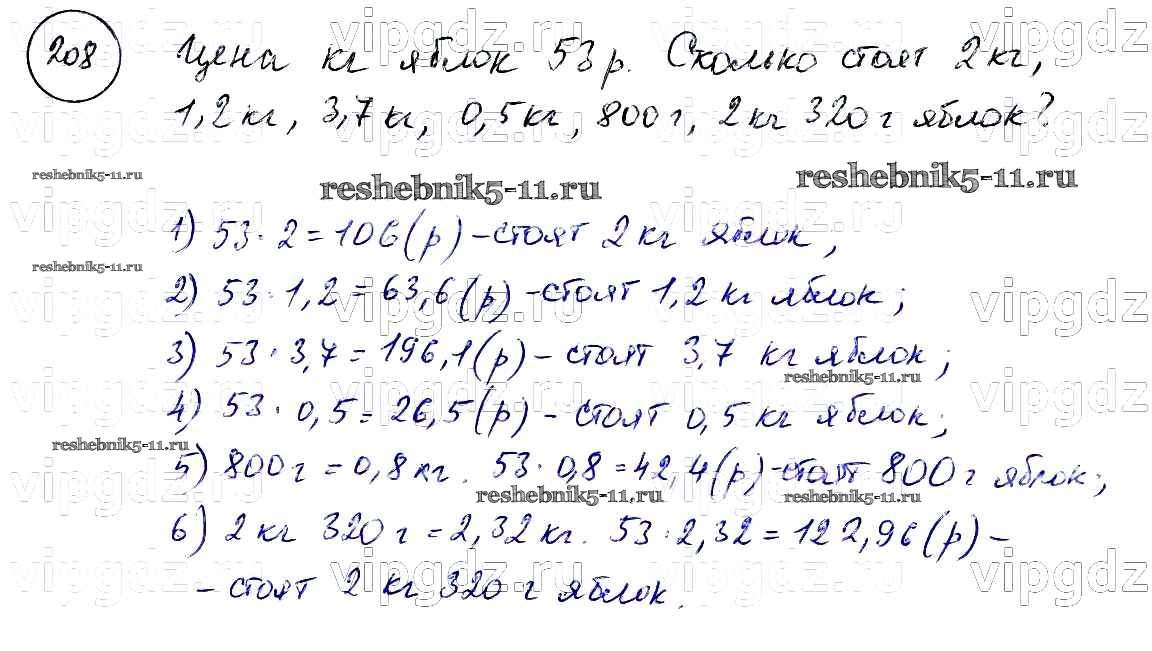 208 Цена кг яблок 53 р. Сколько стоят 2 кг,
1,2 кг, 3,7 кг, 0,5 кг, 800 г, 2 кг 320 г яблок?
reshebnik5-11.ru reshebnik5-11.ru reshebnik5-11.ru
1) 53 · 2 = 106 (р) - стоят 2 кг яблок,
reshebnik5-11.ru
2) 53 · 1,2 = 63,6 (р) - стоят 1,2 кг яблок;
3) 53 · 3,7 = 196,1 (р) - стоят 3,7 кг яблок;
reshebnik5-11.ru
4) 53 · 0,5 = 26,5 (р) - стоят 0,5 кг яблок;
reshebnik5-11.ru
5) 800 г = 0,8 кг. 53 · 0,8 = 42,4 (р) - стоят 800 г яблок;
reshebnik5-11.ru reshebnik5-11.ru
6) 2 кг 320 г = 2,32 кг. 53 · 2,32 = 122,96 (р) -
- стоят 2 кг 320 г яблок.